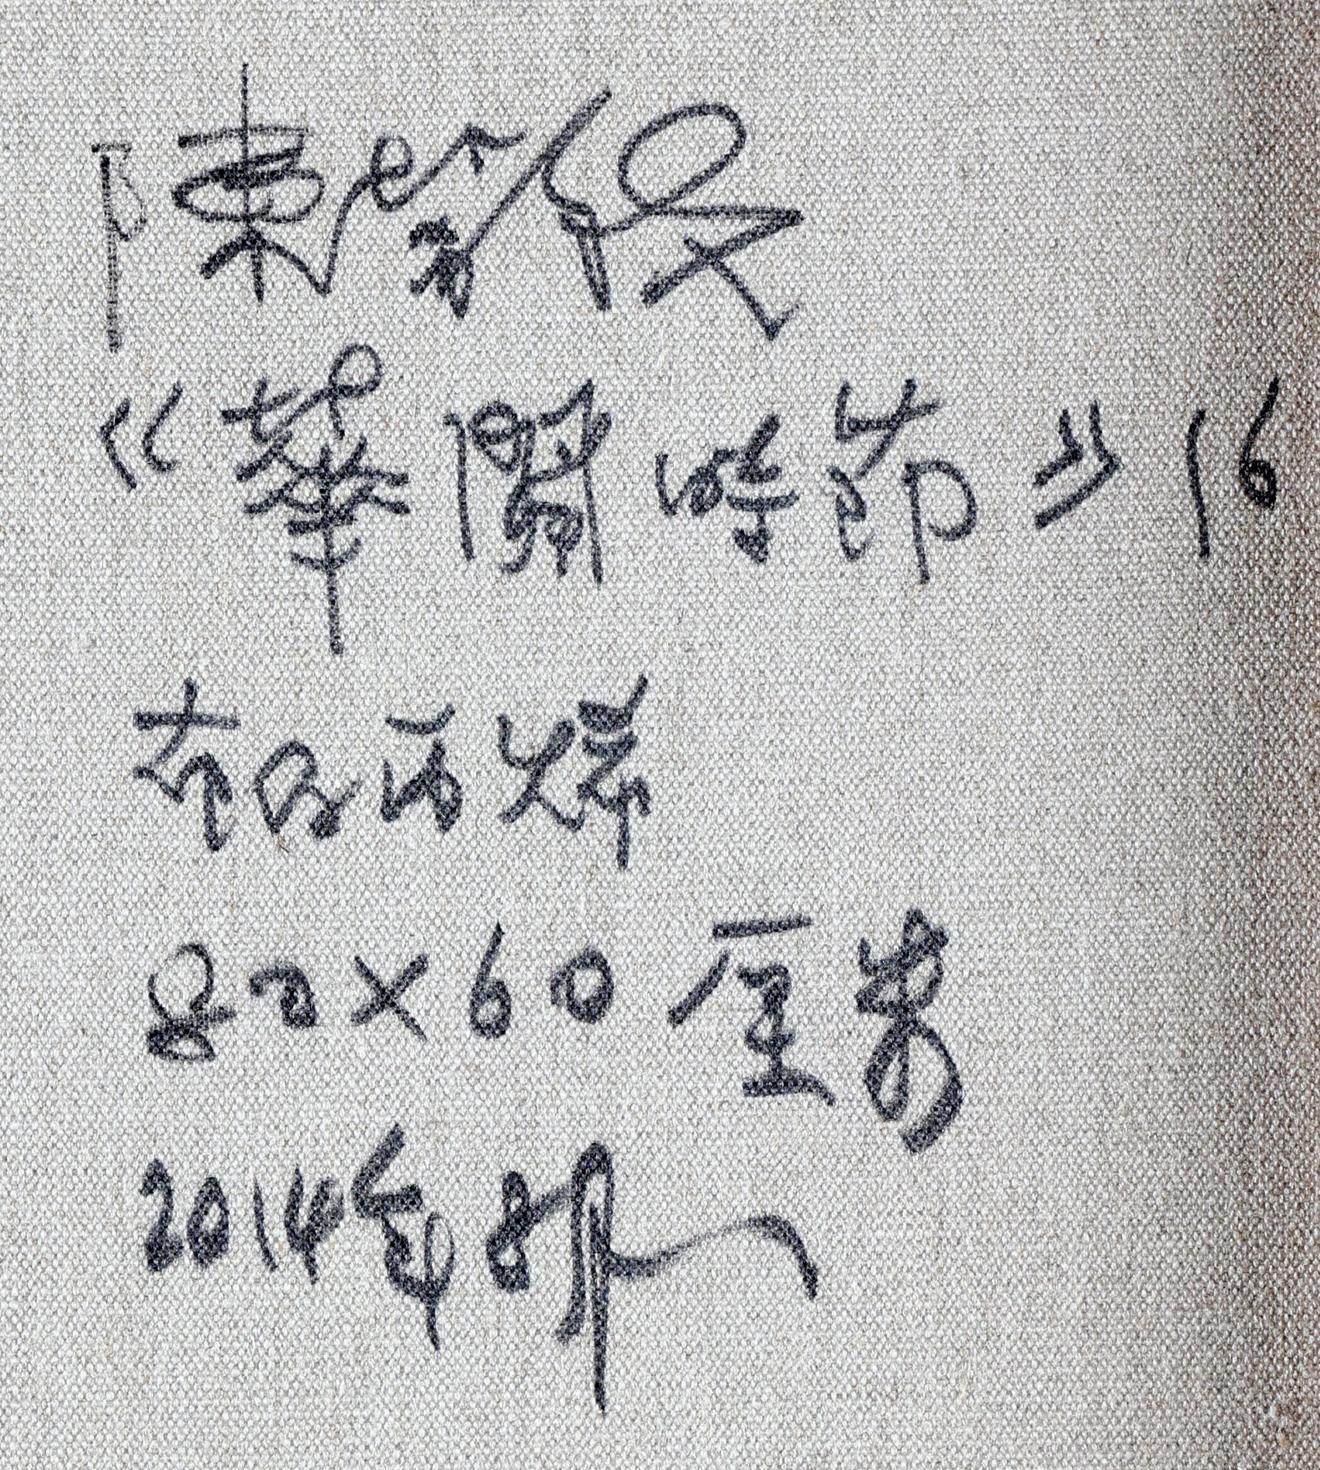 陳
《華開時節》16
布面丙烯
80×60厘米
2014年8月